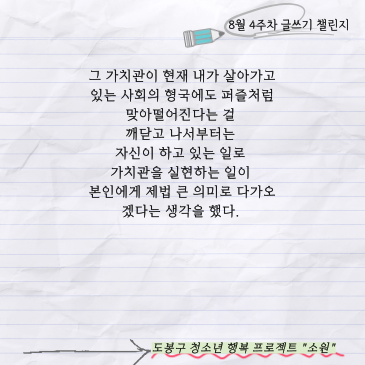 8월 4주차 글쓰기 챌린지
그 가치관이 현재 내가 살아가고
있는 사회의 형국에도 퍼즐처럼
맞아떨어진다는 걸
깨닫고 나서부터는
자신이 하고 있는 일로
가치관을 실현하는 일이
본인에게 제법 큰 의미로 다가오
겠다는 생각을 했다.
도봉구 청소년 행복 프로젝트 "소원"